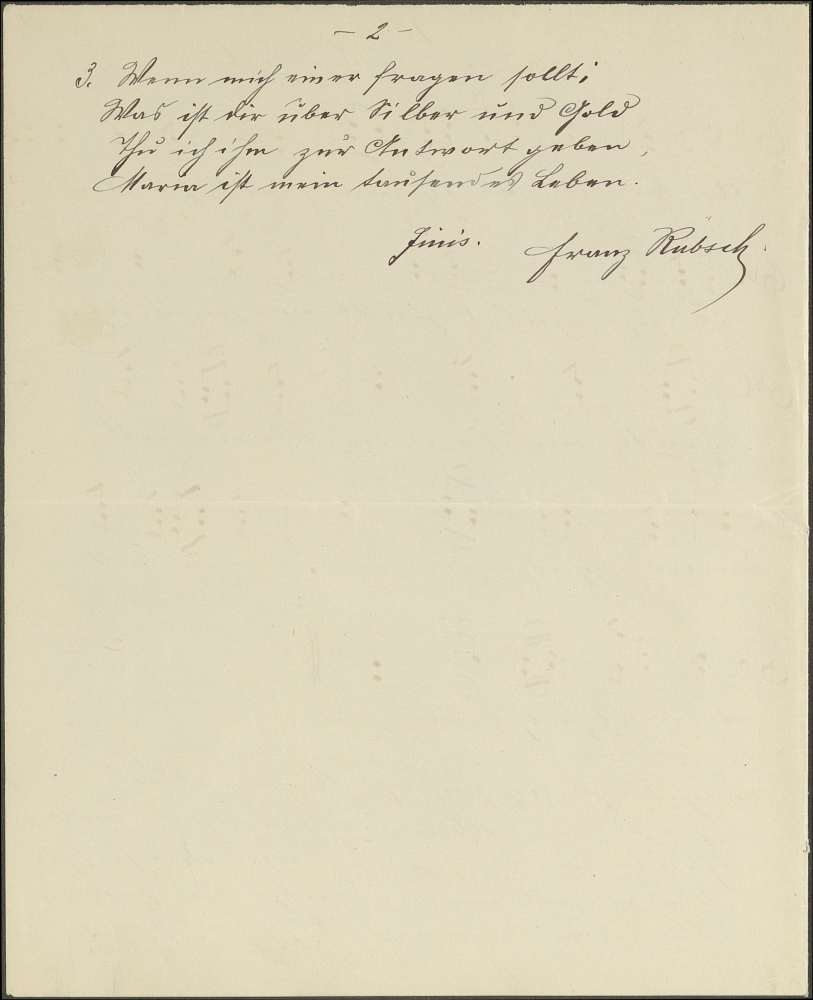 - 2 -
3. Wenn mich einer fragen sollt;
Was ist dir über Silber und Gold
Thu ich ihm zur Antwort geben,
Maria ist mein tausendes Leben.
Finis. Franz Rubsch.